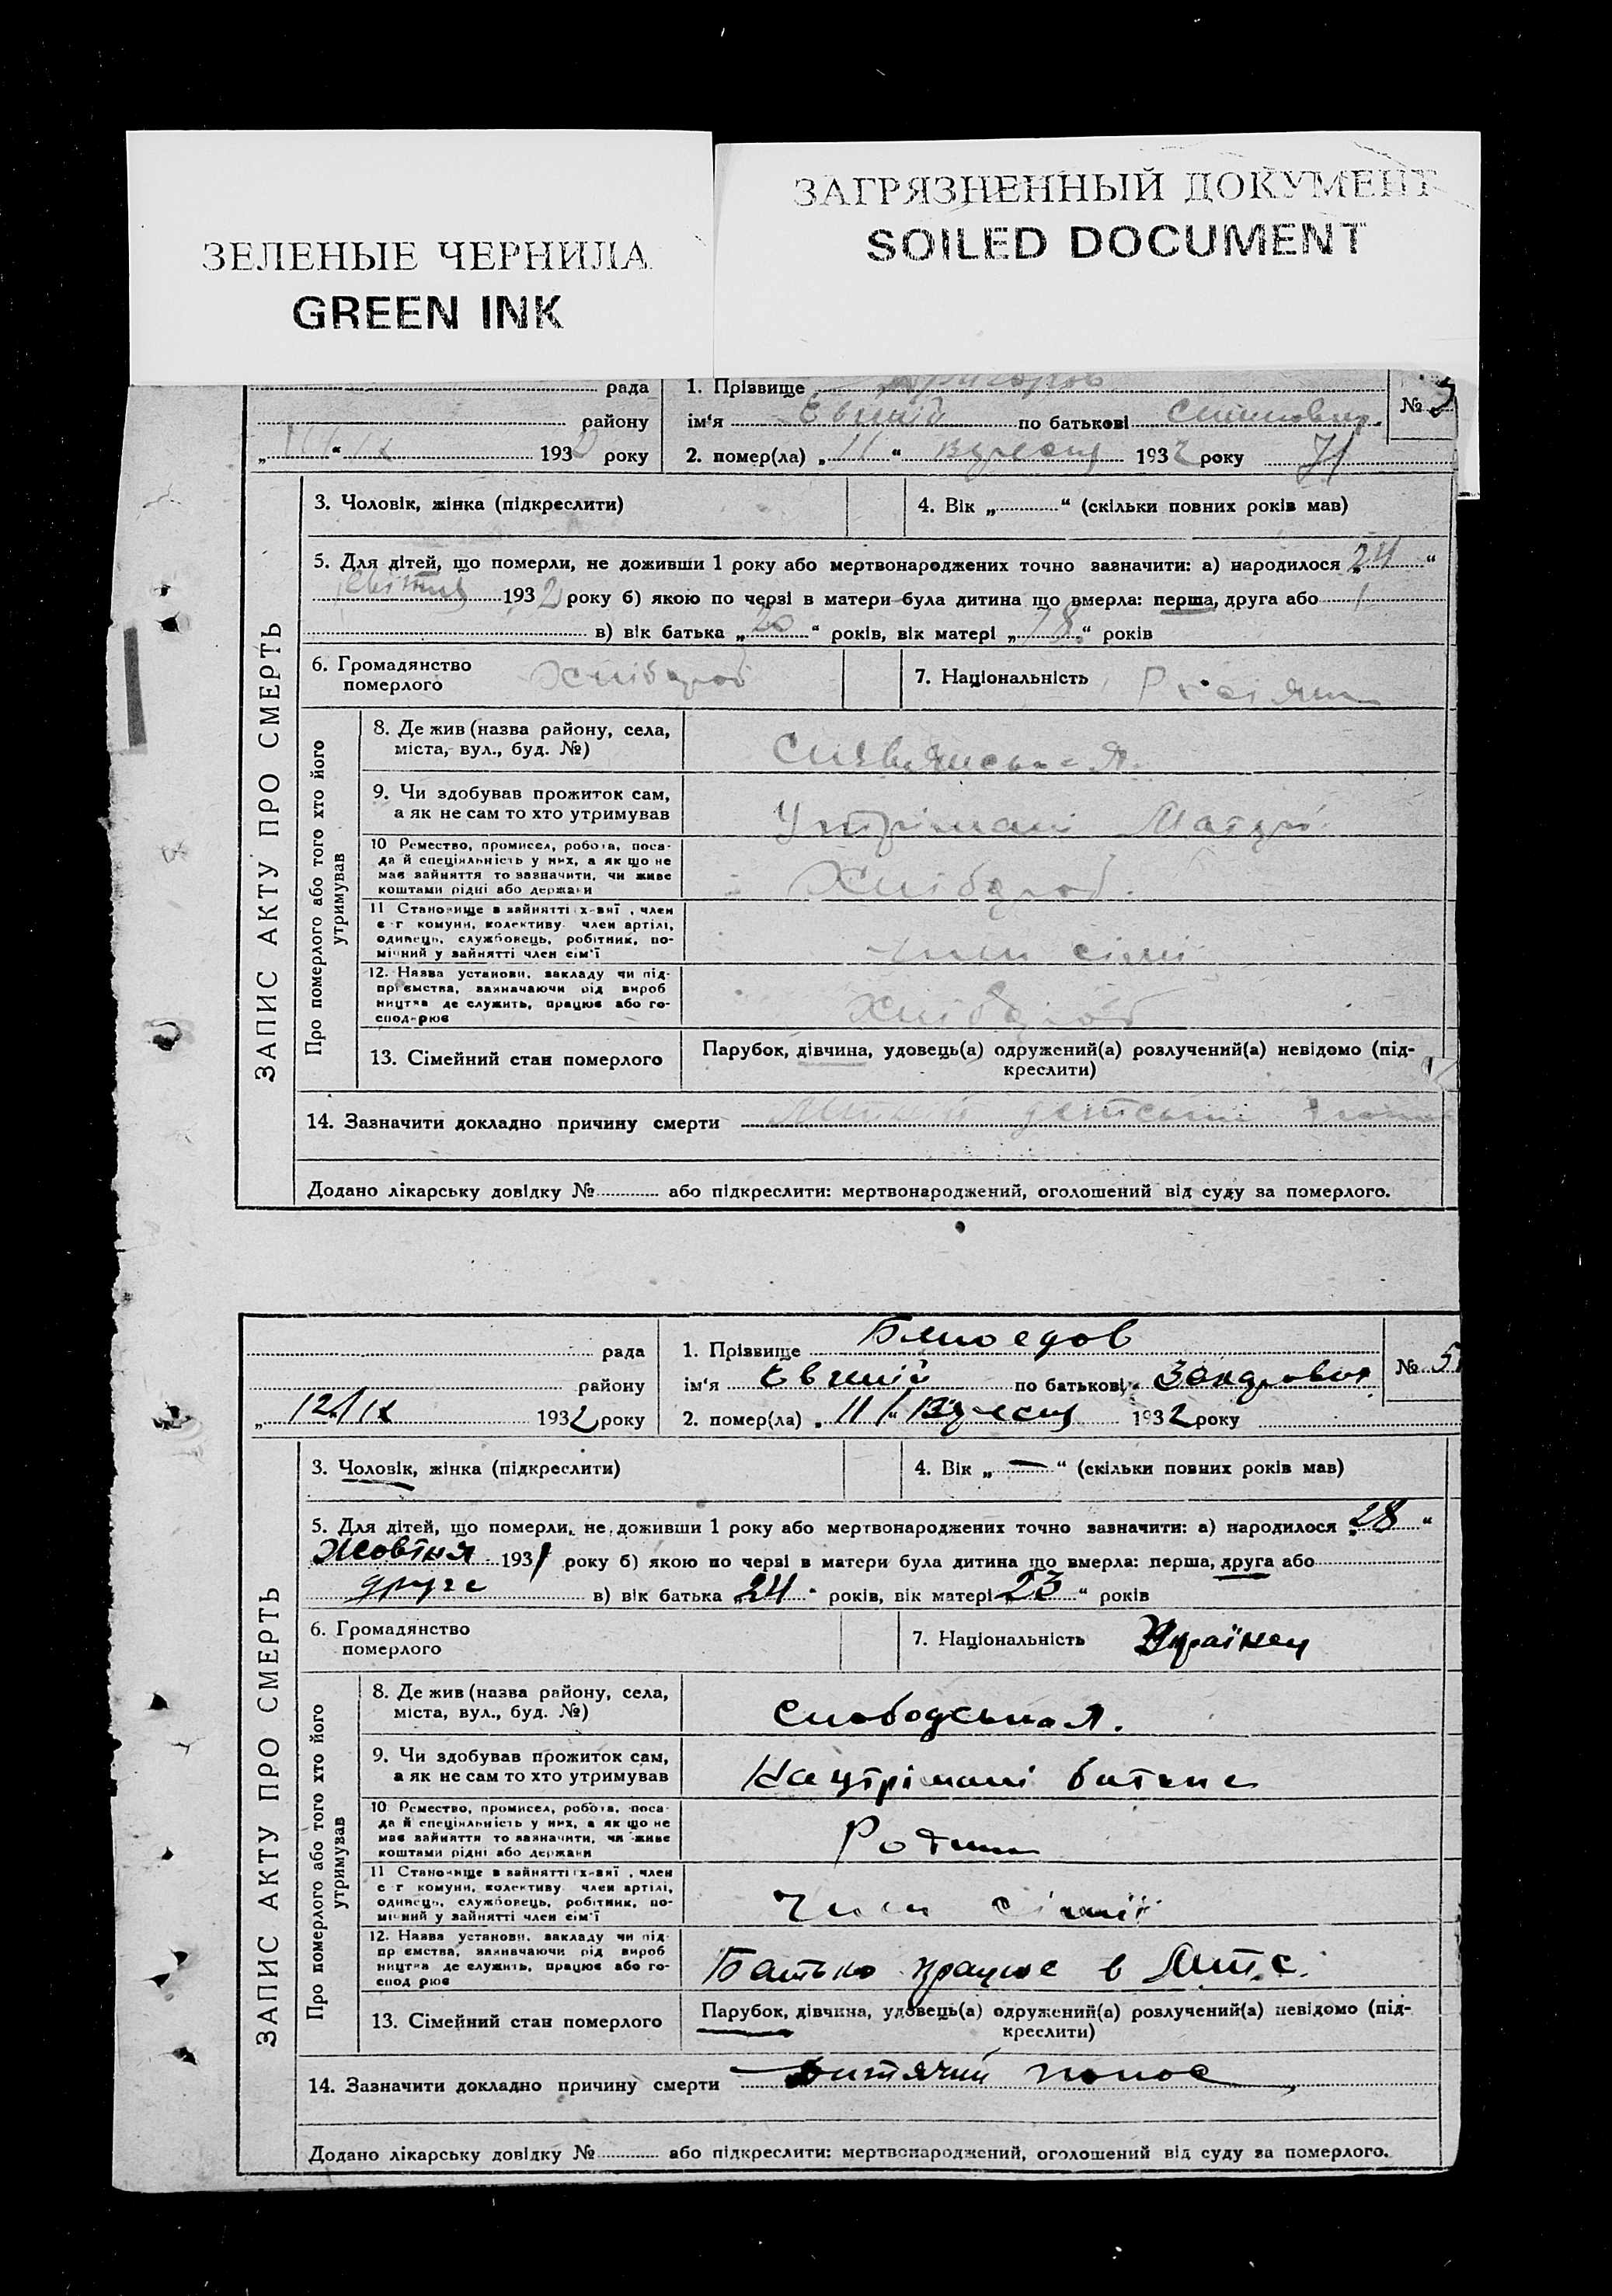 ЗЕЛЕНЫЕ ЧЕРНИЛА
GREEN INK
ЗАГРЯЗНЕННЫЙ ДОКУМЕНТ
SOILED DOCUMENT
рада
району
193 року
1. Прізвище
ім'я Евгеній по батькові
2. помер(ла) „11“ вересня 1932 року
№
ЗАПИС АКТУ ПРО СМЕРТЬ
3. Чоловік, жінка (підкреслити)
4. Вік „ “ (скільки повних років мав)
5. Для дітей, що померли, не доживши 1 року або мертвонароджених точно зазначити: а) народилося „24“
1932 року б) якою по черзі в матери була дитина що вмерла: перша, друга або
в) вік батька „20“ років, вік матері „18“ років
6. Громадянство
померлого
Хлібороб
7. Національність
Про померлого або того хто його
утримував
8. Де жив (назва району, села,
міста, вул., буд. №)
9. Чи здобував прожиток сам,
а як не сам то хто утримував
Утрімані
10 Ремество, промисел, робота, поса-
да й спеціяльність у них, а як що не
має зайняття то зазначити, чи живе
коштами рідні або держави
Хлібороб.
11 Становище в зайнятті х-вні, член
с-г комуни, колективу член артілі,
одинець, службовець, робітник, по-
мічний у зайнятті член сім'ї
член сімї
12. Назва установи, закладу чи під-
приємства, зазначаючи рід вироб
ництва де служить, працює або го-
спод-рює
Хлібороб
13. Сімейний стан померлого
Парубок, дівчина, удовець(а) одружений(а) розлучений(а) невідомо (під-
креслити)
14. Зазначити докладно причину смерти
Додано лікарську довідку № або підкреслити: мертвонароджений, оголошений від суду за померлого.
рада
району
„12/IX 1932 року
1. Прізвище
ім'я Евгеній по батькові
2. померла(ла) „11“ Вересня 1932 року
№ 5
ЗАПИС АКТУ ПРО СМЕРТЬ
3. Чоловік, жінка (підкреслити)
4. Вік „—“ (скільки повних років мав)
5. Для дітей, що померли, не доживши 1 року або мертвонароджених точно зазначити: а) народилося „28“
Жовтня 1931 року б) якою по черзі в матери була дитина що вмерла: перша, друга або
друге в) вік батька „24“ років, вік матері „23“ років
6. Громадянство
померлого
7. Національність Українец
Про померлого або того хто його
утримував
8. Де жив (назва району, села,
міста, вул., буд. №)
Слободська Я.
9. Чи здобував прожиток сам,
а як не сам то хто утримував
На утрімані батька
10 Ремество, промисел, робота, поса-
да й спеціяльність у них, а як що не
має зайняття то зазначити, чи живе
коштами рідні або держави
11 Становище в зайнятті х-вні, член
с-г комуни, колективу член артілі,
одинець, службовець, робітник, по-
мічний у зайнятті член сім'ї
Член сімії
12. Назва установи, закладу чи під-
приємства, зазначаючи рід вироб
ництва де служить, працює або го-
спод рює
Батько працює в М.т.с.
13. Сімейний стан померлого
Парубок, дівчина, удовець(а) одружений(а) розлучений(а) невідомо (під-
креслити)
14. Зазначити докладно причину смерти Дитячий понос
Додано лікарську довідку № або підкреслити: мертвонароджений, оголошений від суду за померлого.